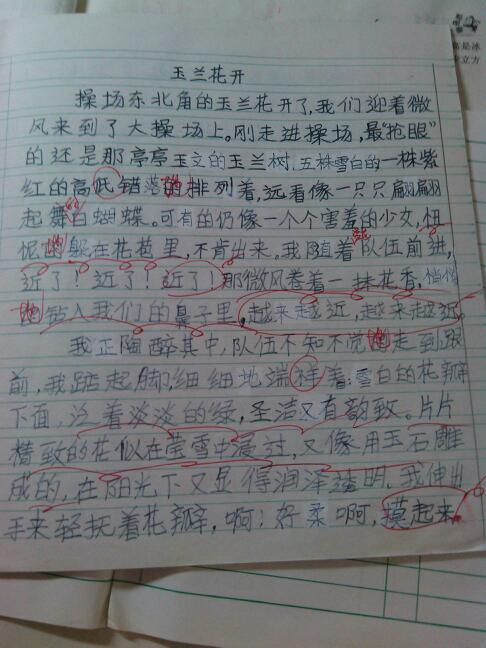 玉兰花开
操场东北角的玉兰花开了,我们迎着微
风来到了大操场上。刚走进操场,最“抢眼”
的还是那亭亭玉立的玉兰树,五株雪白的一株紫
红的高低错落的排列着,远看像一只只翩翩
起舞的白蝴蝶。可有的仍像一个个害羞的少女,忸
怩地躲在花苞里,不肯出来。我随着队伍前进,
近了!近了!近了!那微风卷着一抹花香,悄悄
地钻入我们的鼻子里,越来越近,越来越近。
我正陶醉其中,队伍不知不觉地走到跟
前,我踮起脚,细细地端祥着,雪白的花瓣
下面,泛着淡淡的绿,圣洁又有韵致。片片
精致的花似在莹雪中浸过,又像用玉石雕
成的,在阳光下又显得润泽透明。我伸出
手来轻抚着花瓣,啊!好柔啊,摸起来
是冰
立方